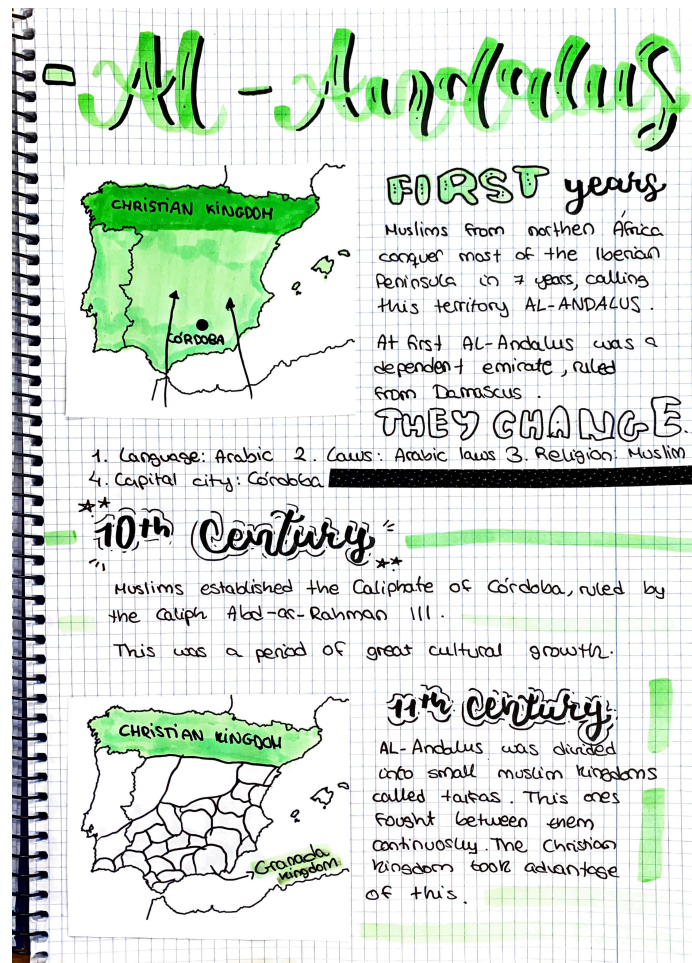 - Al-Andalus
CHRISTIAN KINGDOM
CÓRDOBA
FIRST years
Muslims from northen África
conquer most of the Iberian
Peninsula in 7 years, calling
this territory AL-ANDALUS.
At first AL-Andalus was a
dependent emirate, ruled
from Damascus.
THEY CHANGE
1. Language: Arabic 2. Laws: Arabic laws 3. Religion: Muslim
4. Capital city: Córdoba
10th Century
Muslims established the Caliphate of Córdoba, ruled by
the caliph Abd-ar-Rahman III.
This was a period of great cultural growth.
CHRISTIAN KINGDOM
Granada
kingdom
11th Century
AL-Andalus was divided
into small muslim kingdoms
called taifas. This ones
fought between them
continuoslly. The Christian
kingdom took advantage
of this.